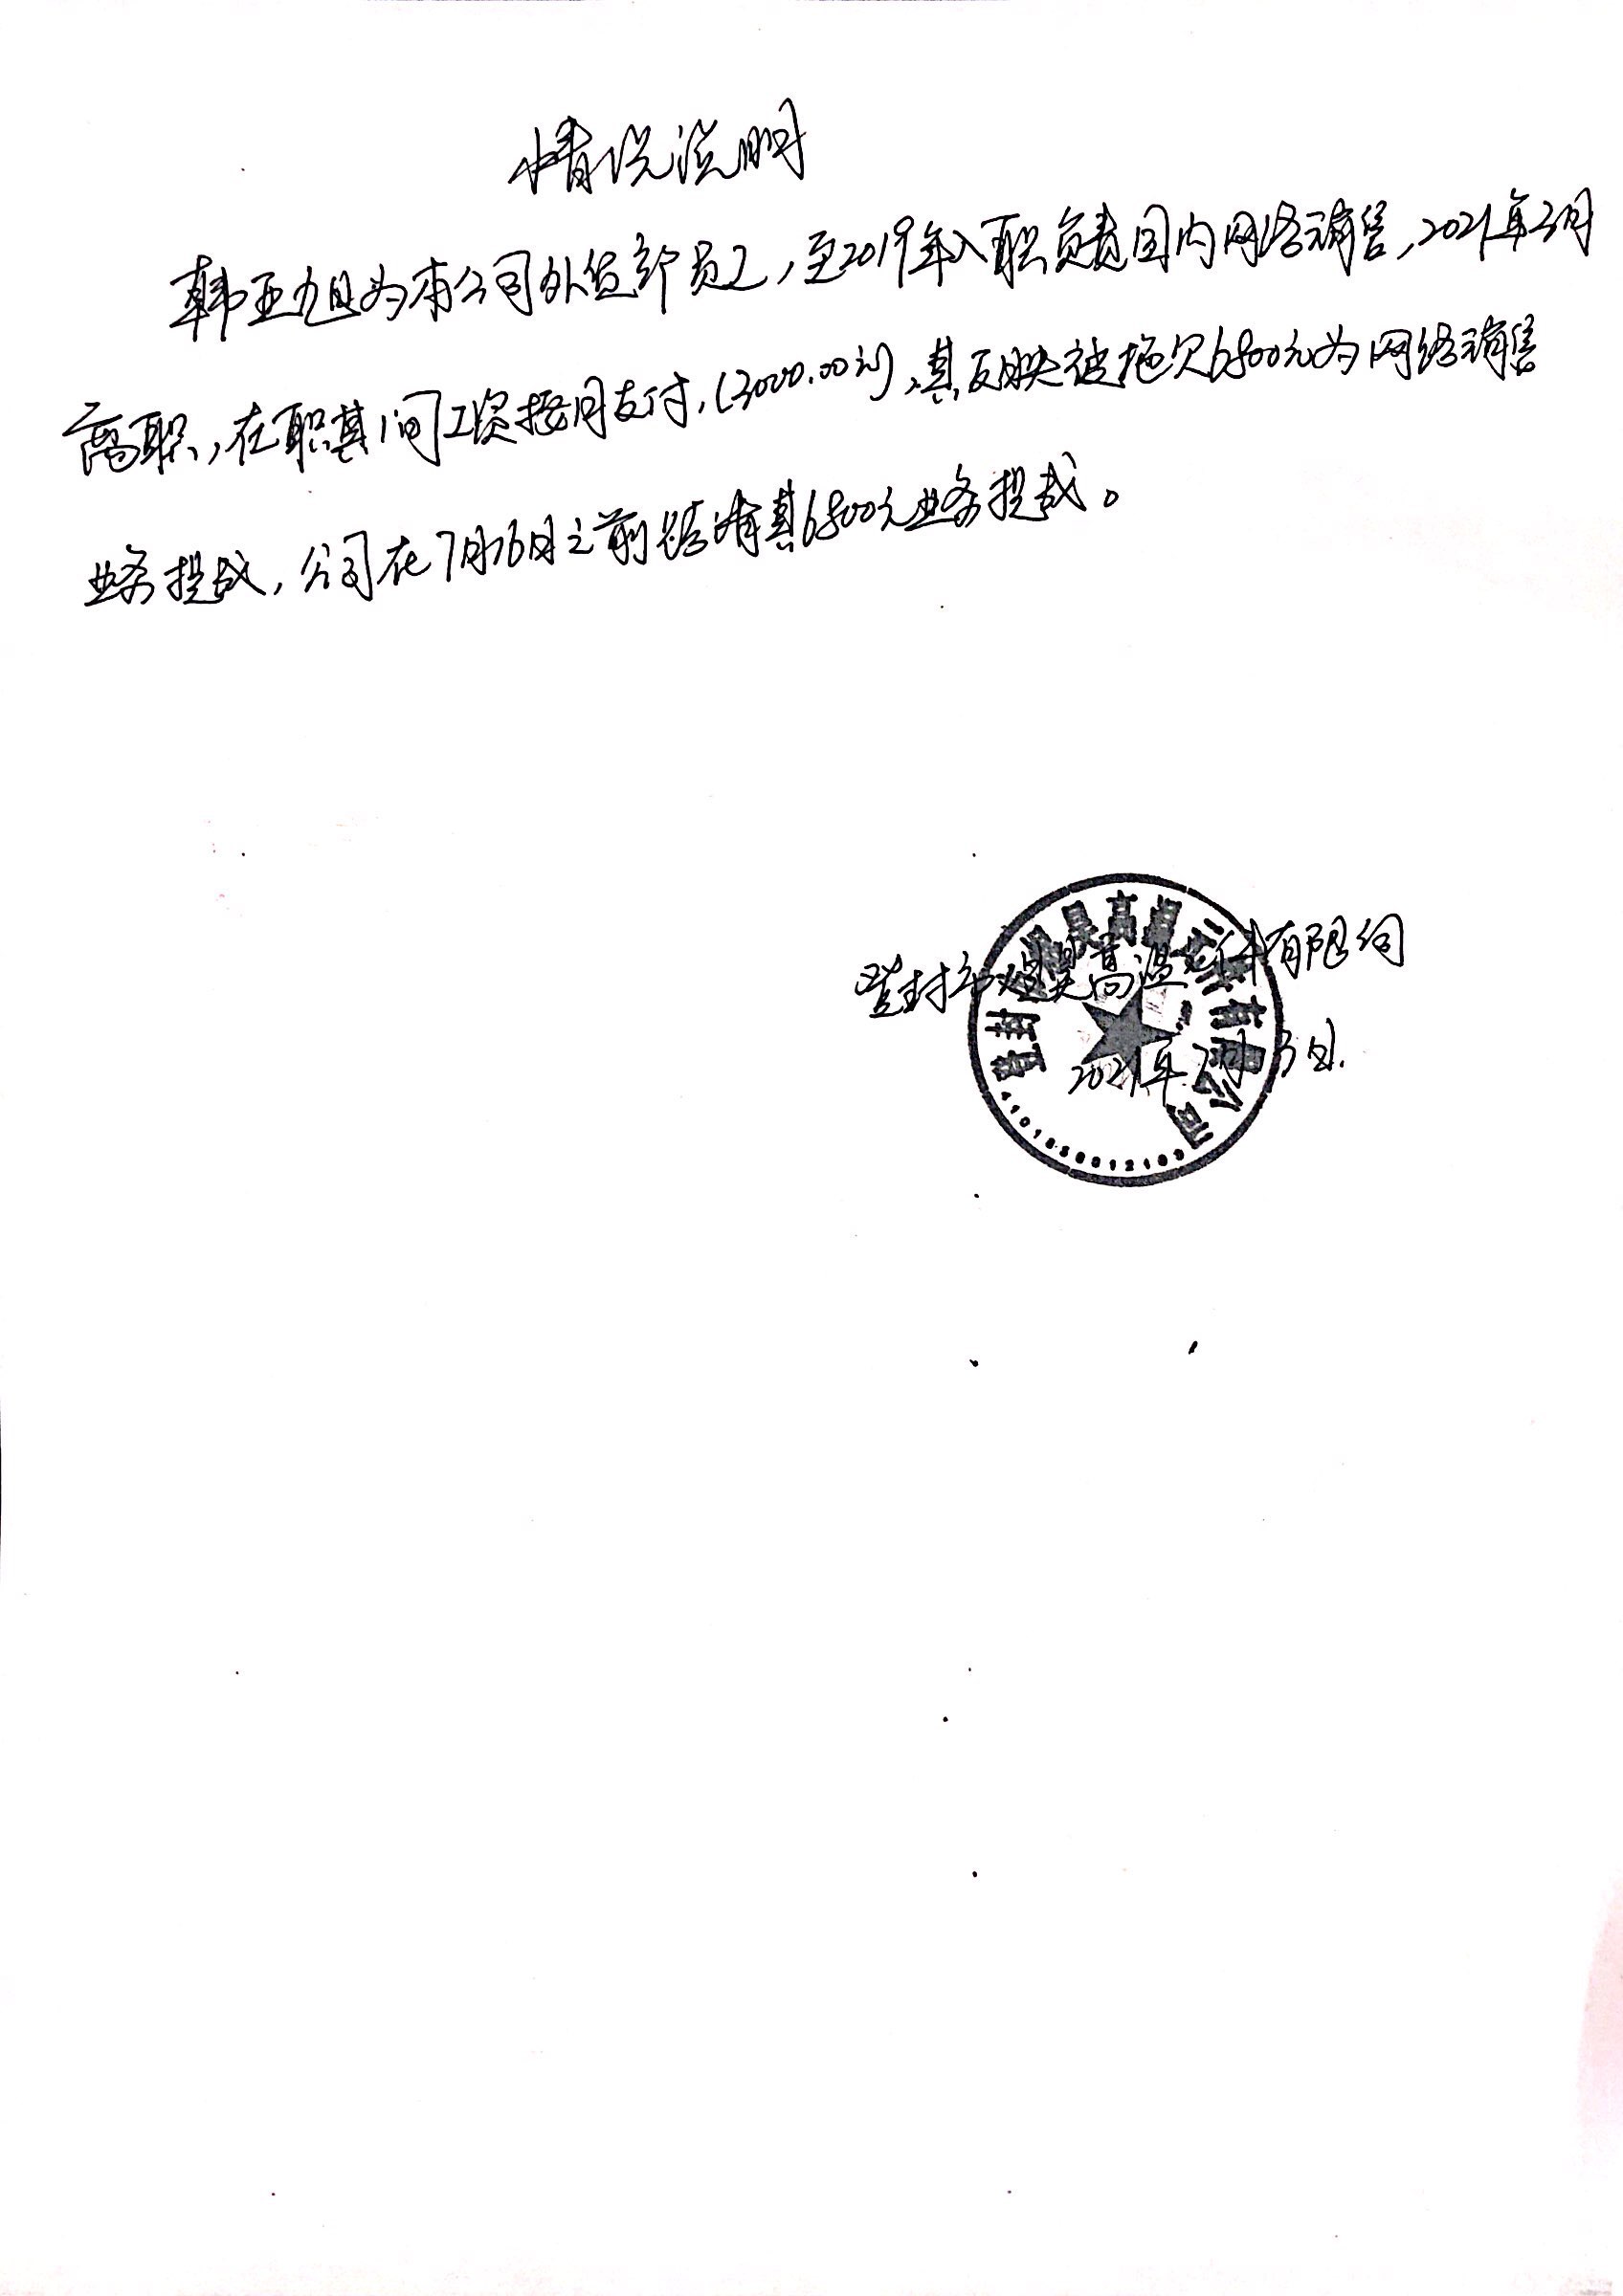 情况说明
韩亚旭为本公司外贸部员工，至2019年入职负责国内网络销售，2021年3月
离职，在职其间工资按月支付，(3000.00元)，其反映被拖欠6800元为网络销售
业务提成，公司在7月16日之前结清其6800元业务提成。
登封市煜昊高温元件有限公司
2021年7月13日.
登封 煜昊高温元件有限公司